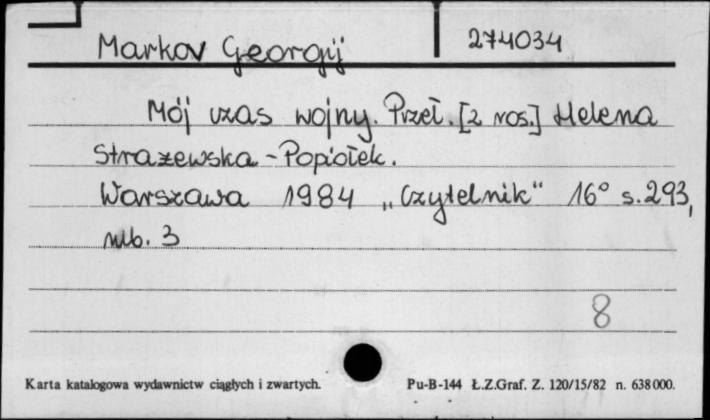 Markov Georgij 274034
Mój czas wojny. Przeł. [z ros.] Helena
Strażewska-Popiołek.
Warszawa 1984 „Czytelnik" 16° s. 293,
nlb. 3
8
Karta katalogowa wydawnictw ciągłych i zwartych. Pu-B-144 Ł.Z.Graf. Z. 120/15/82 n. 638000.